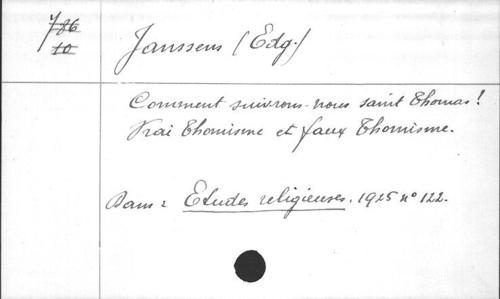 786
10
Janssens (Edg.)
Comment suivrons-nous saint Thomas!
Vrai Thomisme et faux Thomisme.
Dans: Etudes religieuses. 1925 n° 122.